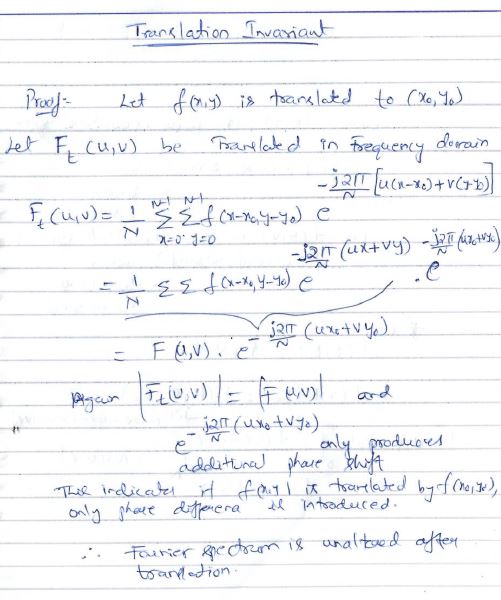 Translation Invariant
Proof:- Let f(x,y) is translated to (x0, y0)
Let Ft (u,v) be Translated in Frequency domain
Ft(u,v) = 1/N Σ_{x=0}^{N-1} Σ_{y=0}^{N-1} f(x-x0, y-y0) e^{-j2π/N [u(x-x0)+v(y-y0)]}
= 1/N Σ Σ f(x-x0, y-y0) e^{-j2π/N (ux+vy)} . e^{-j2π/N (ux0+vy0)}
= F(u,v) . e^{-j2π/N (ux0+vy0)}
Again |Ft(u,v)| = |F(u,v)| and
e^{-j2π/N (ux0+vy0)} only produces
additional phase shift
This indicates if f(x,y) is translated by f(x0,y0),
only phase differena is introduced.
∴ Fourier spectrum is unaltered after
translation.